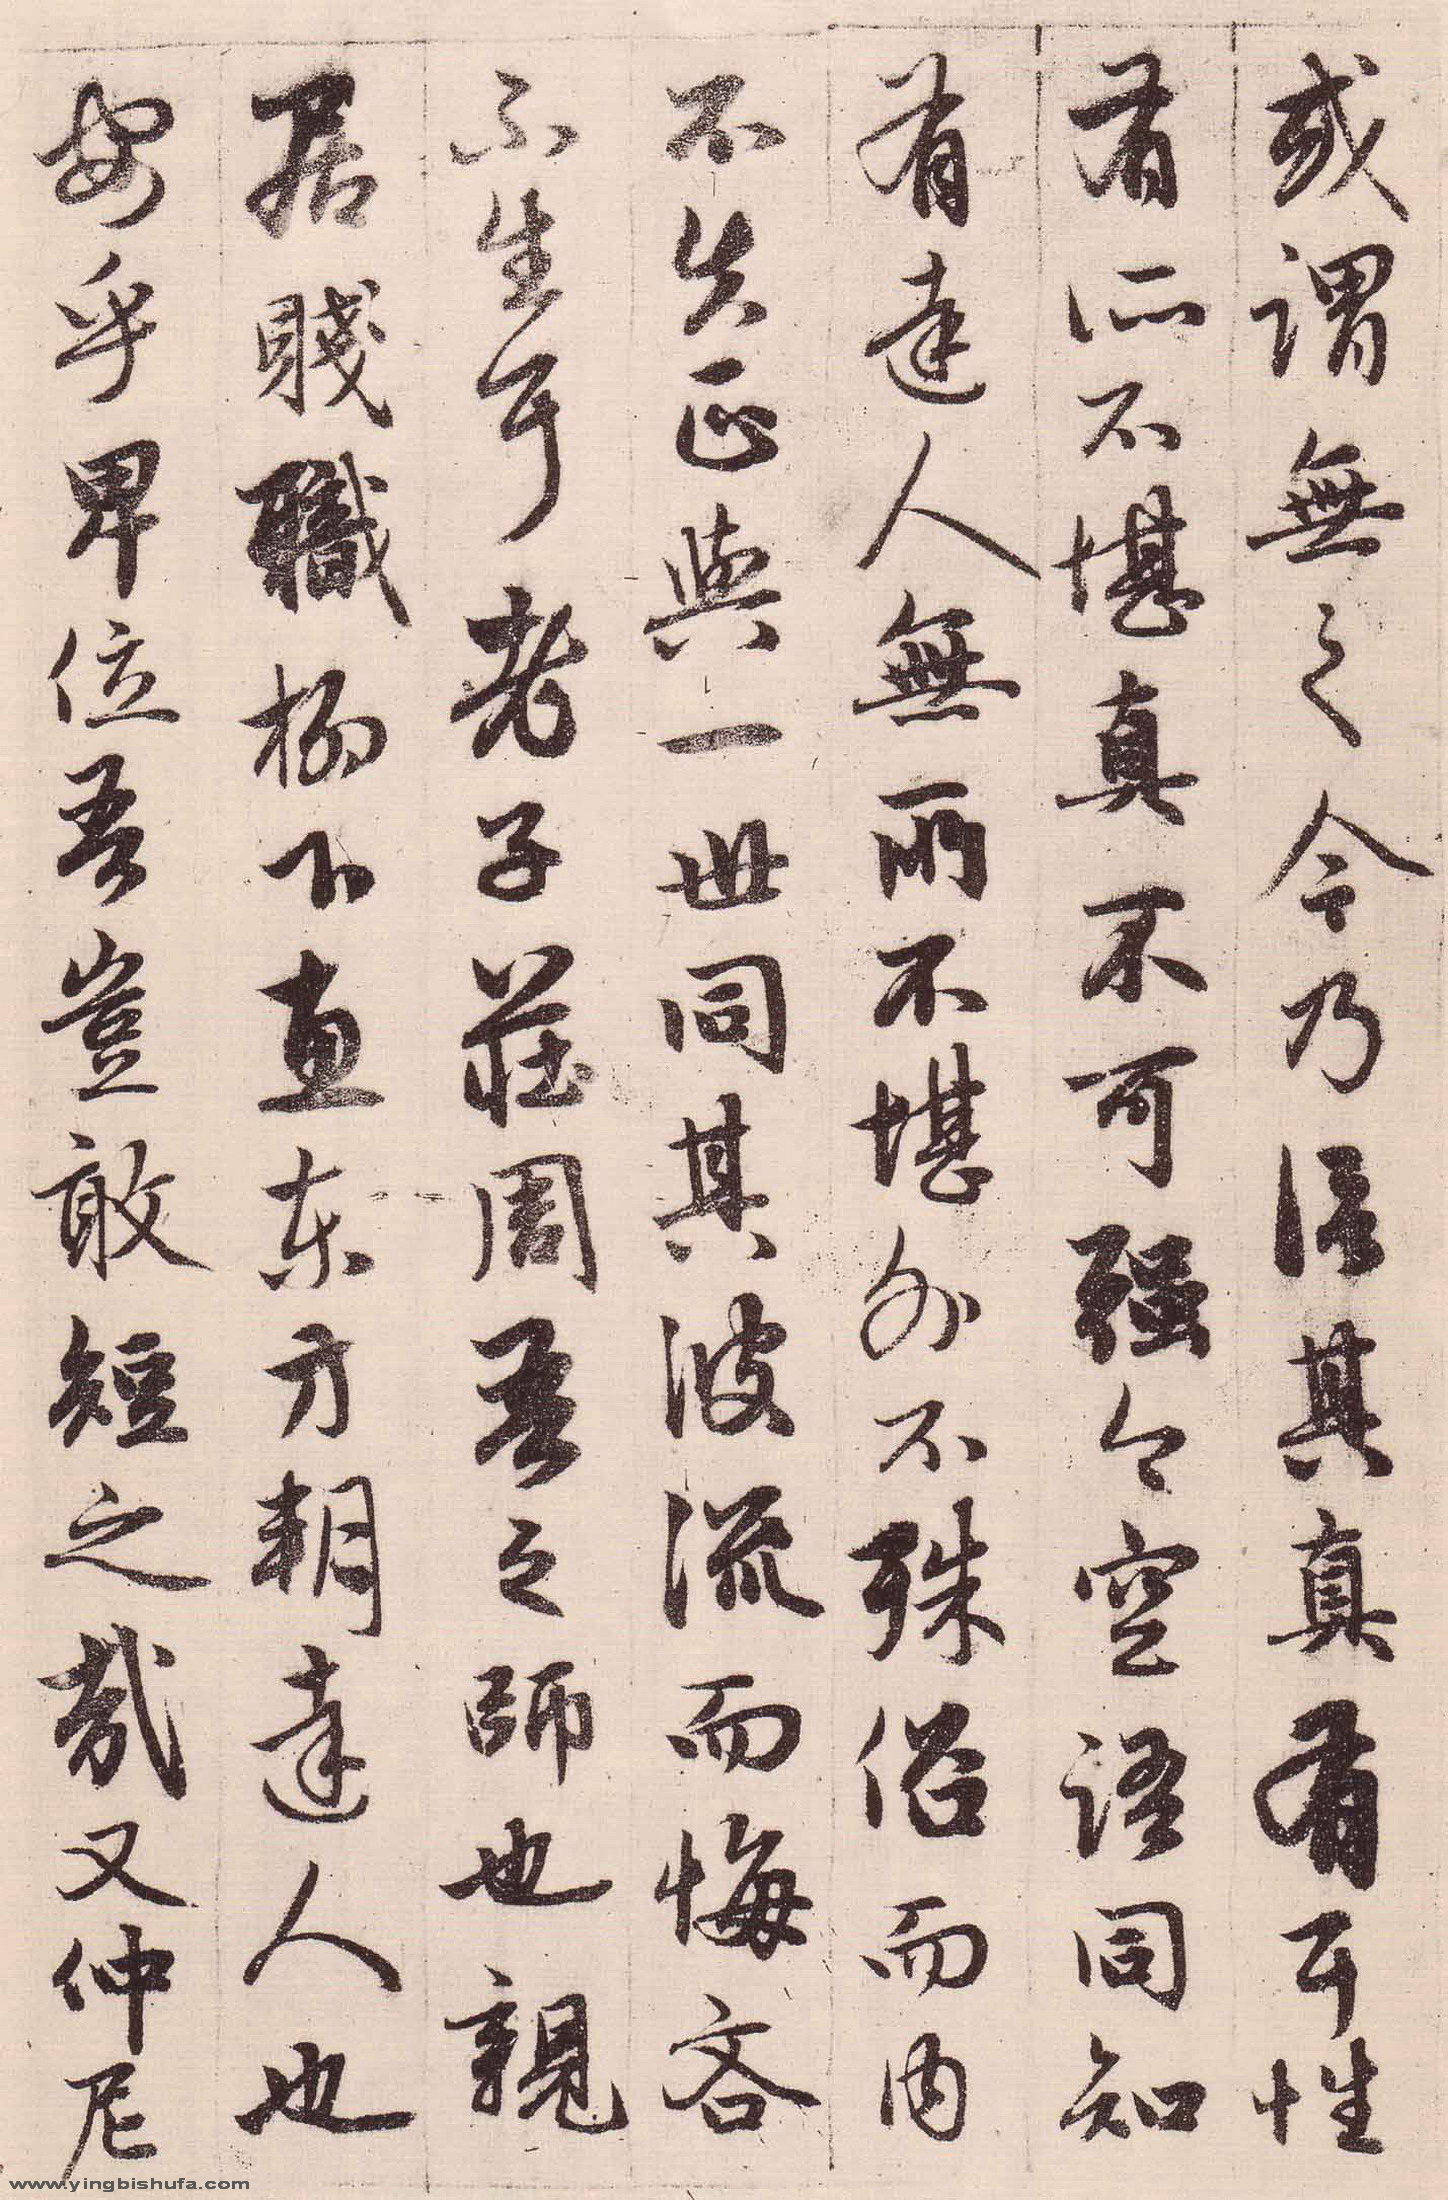 或謂無之今乃信其真有耳性
有所不堪真不可强今空語同知
有達人無所不堪外不殊俗而內
不失正與一世同其波流而悔吝
不生耳老子莊周吾之師也親
居賤職柳下直東方朔達人也
安乎卑位吾豈敢短之哉又仲尼
www.yingbishufa.com